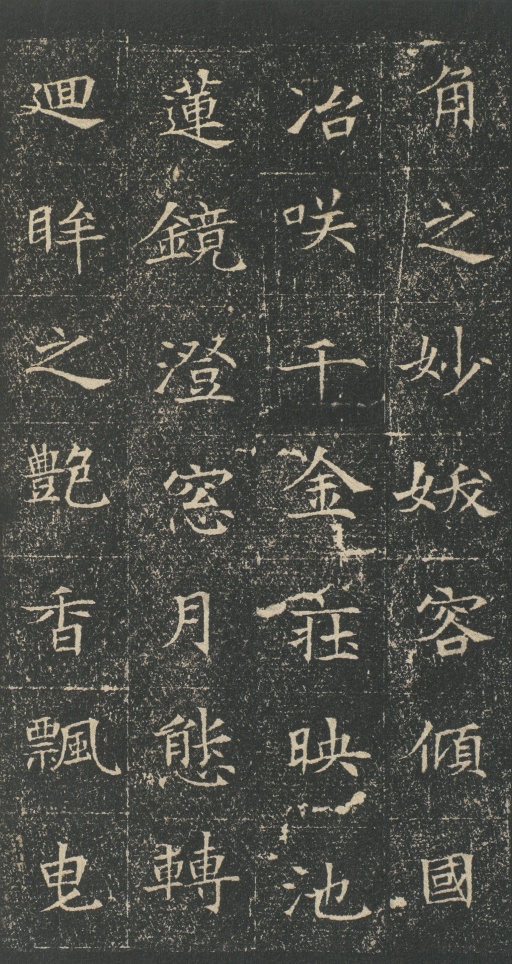 角之妙妖容傾國
冶咲千金莊映池
蓮鏡澄窓月態轉
迴眸之艷香飄曳